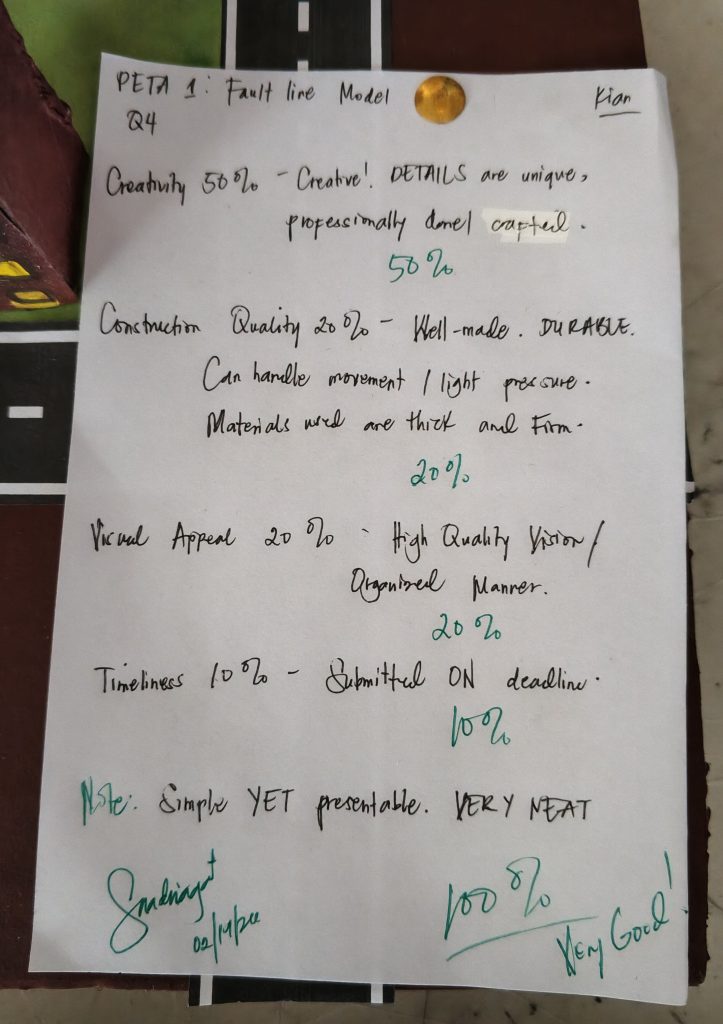 PETA 1: Fault line Model
Kian
Q4
Creativity 50% - Creative! DETAILS are unique,
professionally done/ crafted.
50%
Construction Quality 20% - Well-made. DURABLE.
Can handle movement / light pressure.
Materials used are thick and Firm.
20%
Visual Appeal 20% - High Quality Vision/
Organized Manner.
20%
Timeliness 10% - Submitted ON deadline.
10%
Note: Simple YET presentable. VERY NEAT
100%
Very Good!